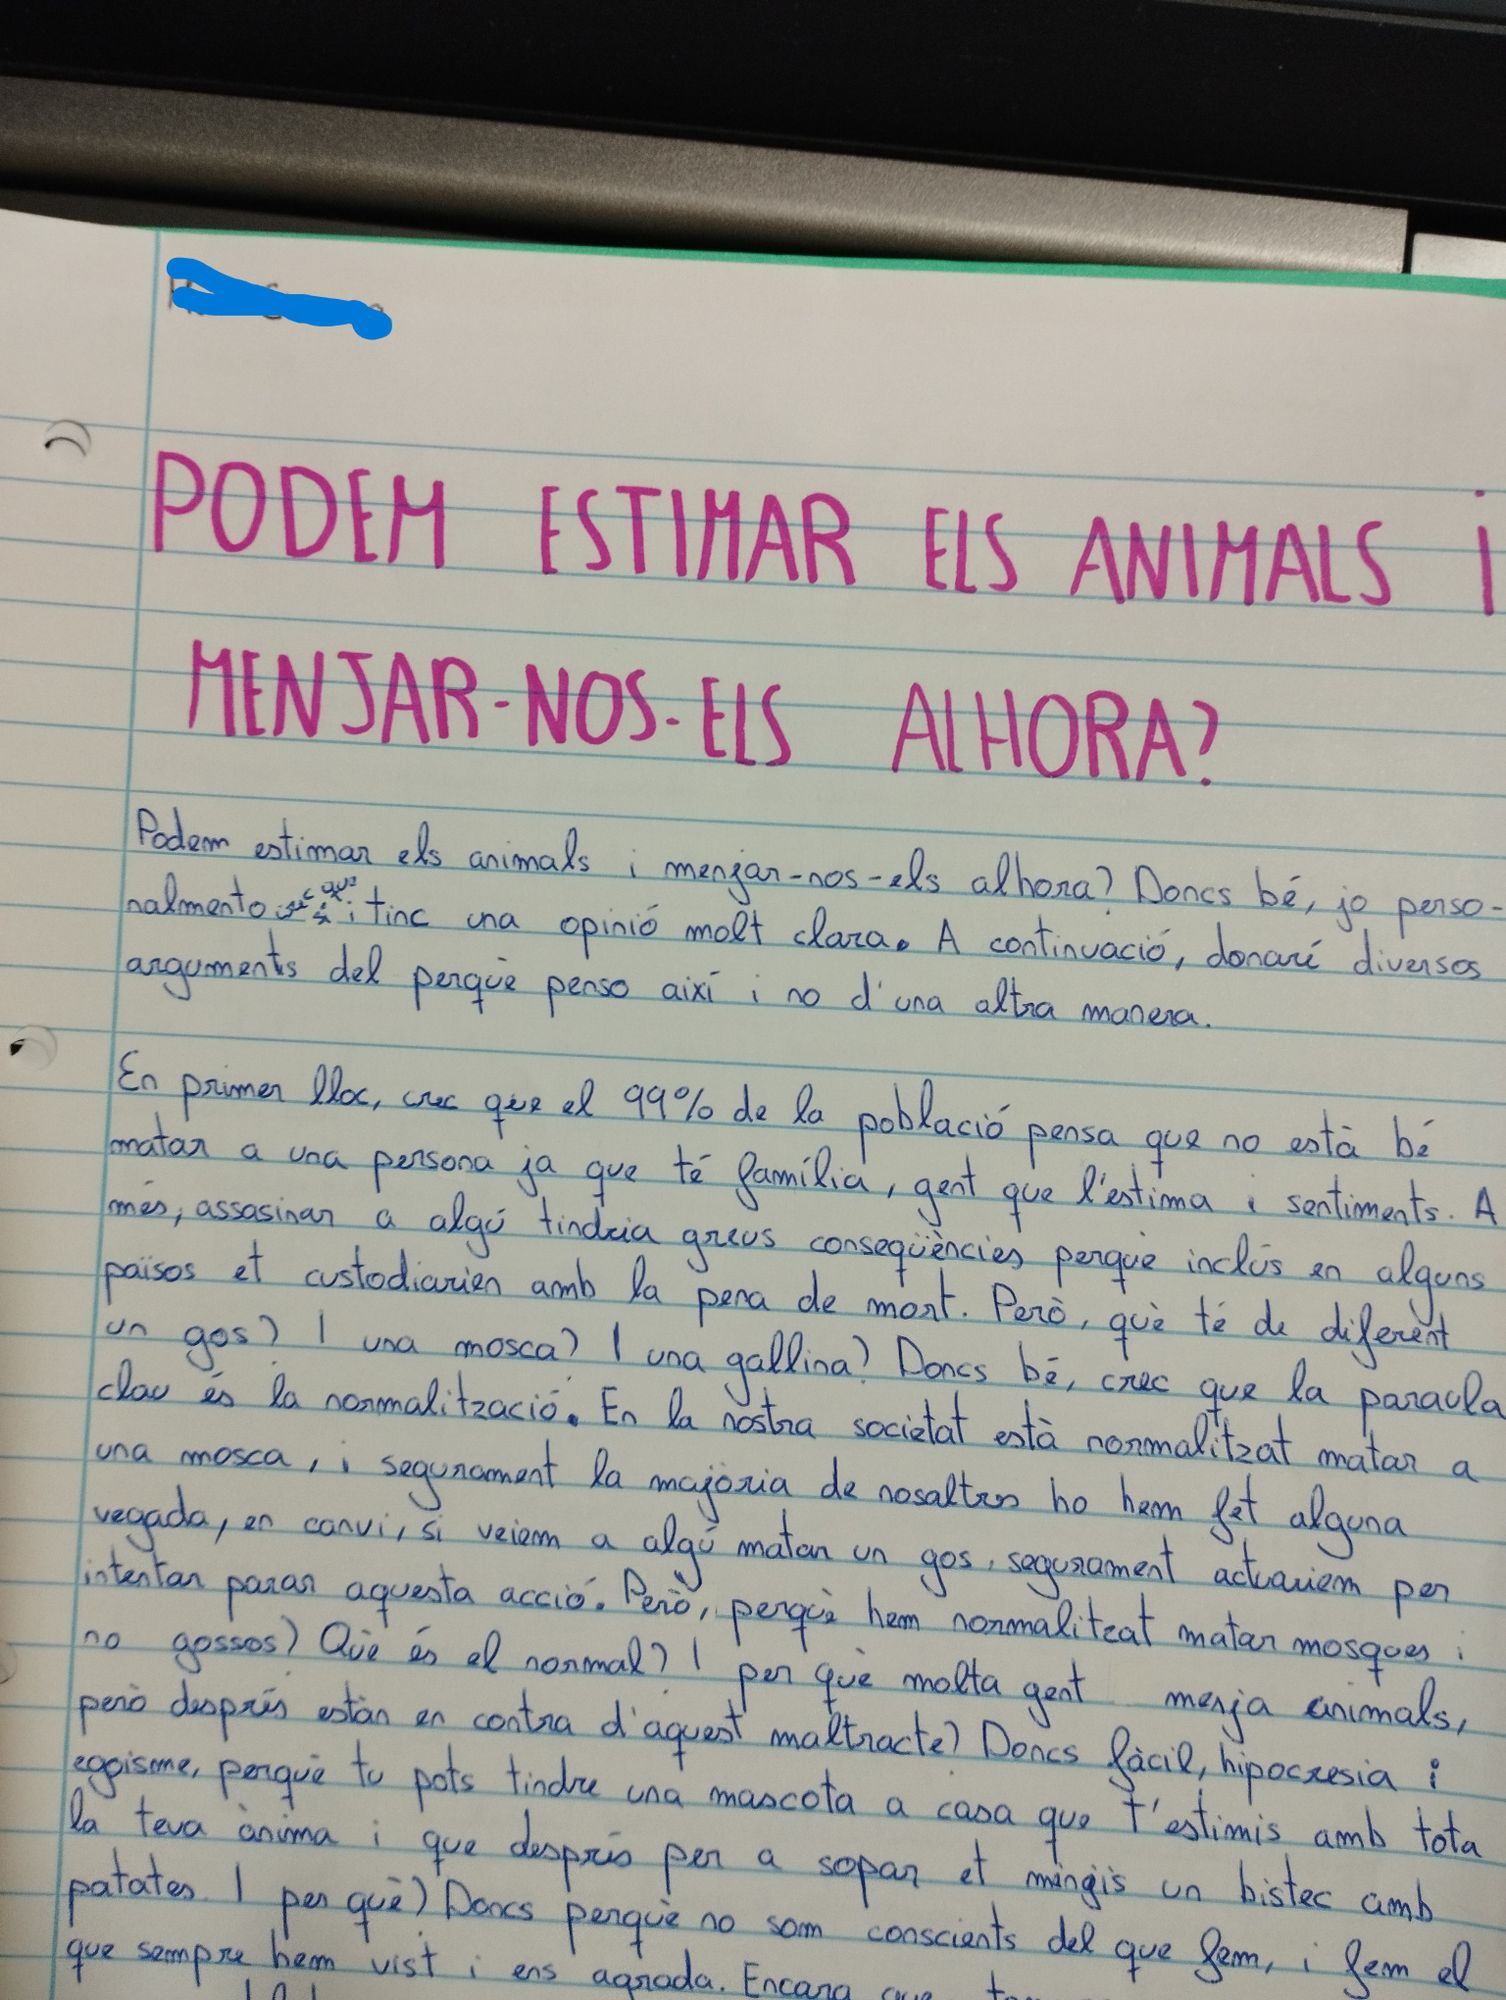 PODEM ESTIMAR ELS ANIMALS i
MENJAR-NOS-ELS ALHORA?
Podem estimar els animals i menjar-nos-els alhora? Doncs bé, jo perso-
nalment crec que sí i tinc una opinió molt clara. A continuació, donaré diversos
arguments del perquè penso així i no d'una altra manera.
En primer lloc, crec que el 99% de la població pensa que no està bé
matar a una persona ja que té família, gent que l'estima i sentiments. A
més, assasinar a algú tindria greus conseqüències perquè inclús en alguns
països et custodiarien amb la pena de mort. Però, què té de diferent
un gos? I una mosca? I una gallina? Doncs bé, crec que la paraula
clau és la normalització. En la nostra societat està normalitzat matar a
una mosca, i segurament la majoria de nosaltres ho hem fet alguna
vegada, en canvi, si veiem a algú matar un gos, segurament actuariem per
intentar parar aquesta acció. Però, perquè hem normalitzat matar mosques i
no gossos? Què és el normal? I per què molta gent menja animals,
però després estàn en contra d'aquest maltracte? Doncs fàcil, hipocresia i
egoisme, perquè tu pots tindre una mascota a casa que t'estimis amb tota
la teva ànima i que després per a sopar et mingis un bistec amb
patates. I per què? Doncs perquè no som conscients del que fem, i fem el
que sempre hem vist i ens agrada. Encara que